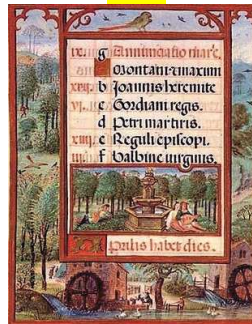 ix. g Annunciatio marie.
Montani t maximi
xvij. b Joannis heremite
vi. c Gordiani regis.
d Petri martiris.
xiiij. e Reguli episcopi.
iij. f Balbine virginis.
Aprilis habet dies.